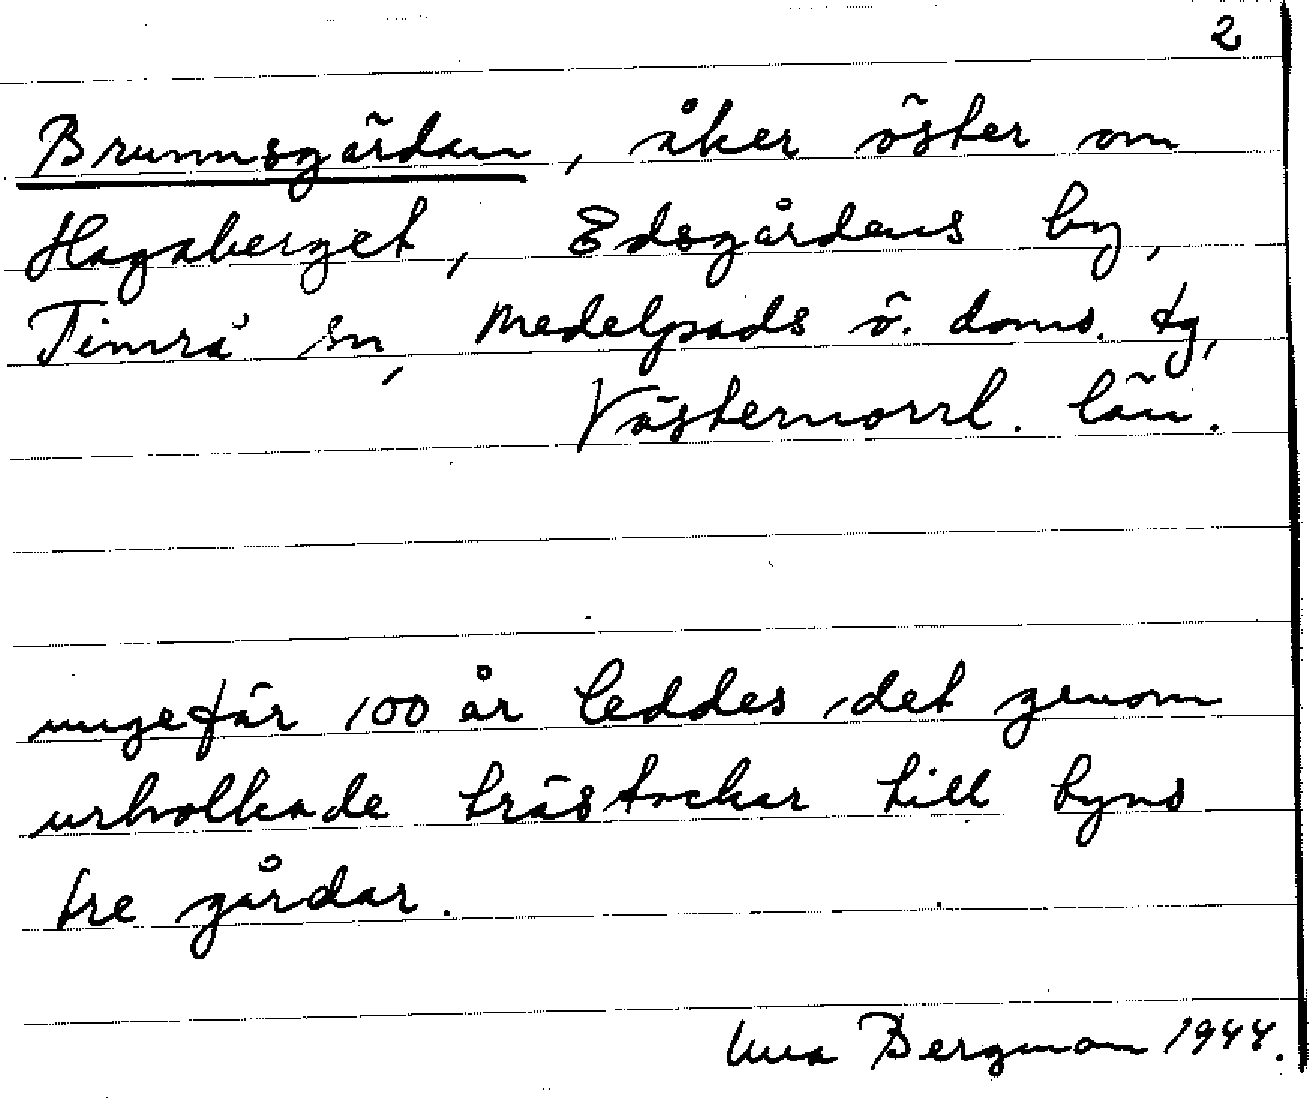 2
Brunnsgärdan, åker öster om
Hagaberget, Edsgårdens by,
Timrå sn, Medelpads ö. doms. tg,
Västernorrl. län.
ungefär 100 år leddes det genom
urholkade trästockar till byns
tre gårdar.
Bergman 1944.